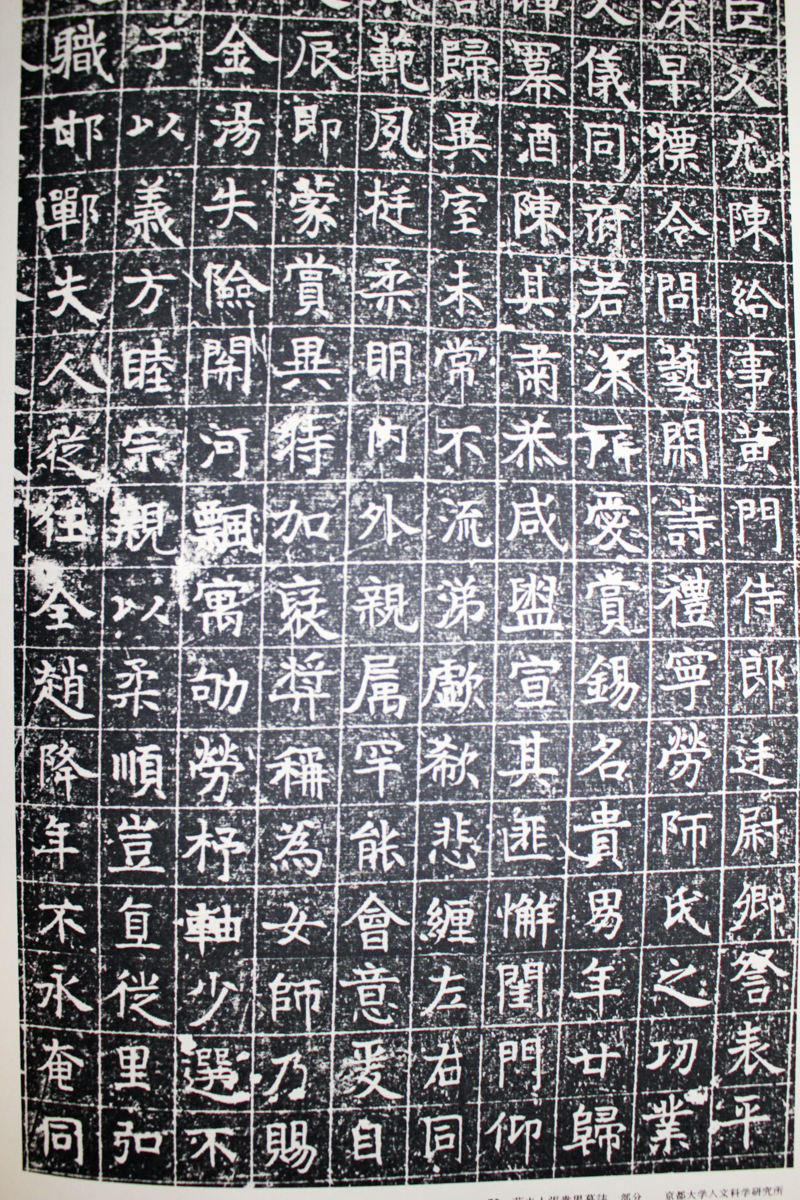 臣父尤陳給事黄門侍郎廷尉卿詧表平
深早摽令問藝閑詩禮寧勞師氏之功業
大儀同府若深所愛賞錫名貴男年廿歸
冪酒陳其肅恭咸盥宣其匪懈閨門仰
歸異室未常不流涕歔欷悲纏左右同
範夙挺柔明内外親属罕能會意爰自
辰即蒙賞異特加裦奨稱為女師乃賜
金湯失險開河飄寓劬勞杼軸少選不
子以義方睦宗親以柔順豈直從里弘
職邯鄲失人從往全趙降年不永奄同
夫人張貴男墓誌 部分 京都大学人文科学研究所